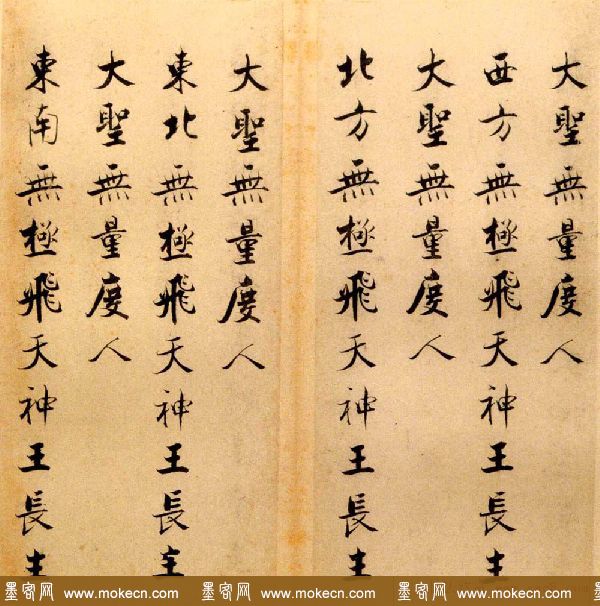 大聖無量度人
西方無極飛天神王長生
大聖無量度人
北方無極飛天神王長生
大聖無量度人
東北無極飛天神王長生
大聖無量度人
東南無極飛天神王長生
墨客网 www.mokecn.com 墨客网 www.mokecn.com 墨客网 www.mokecn.com